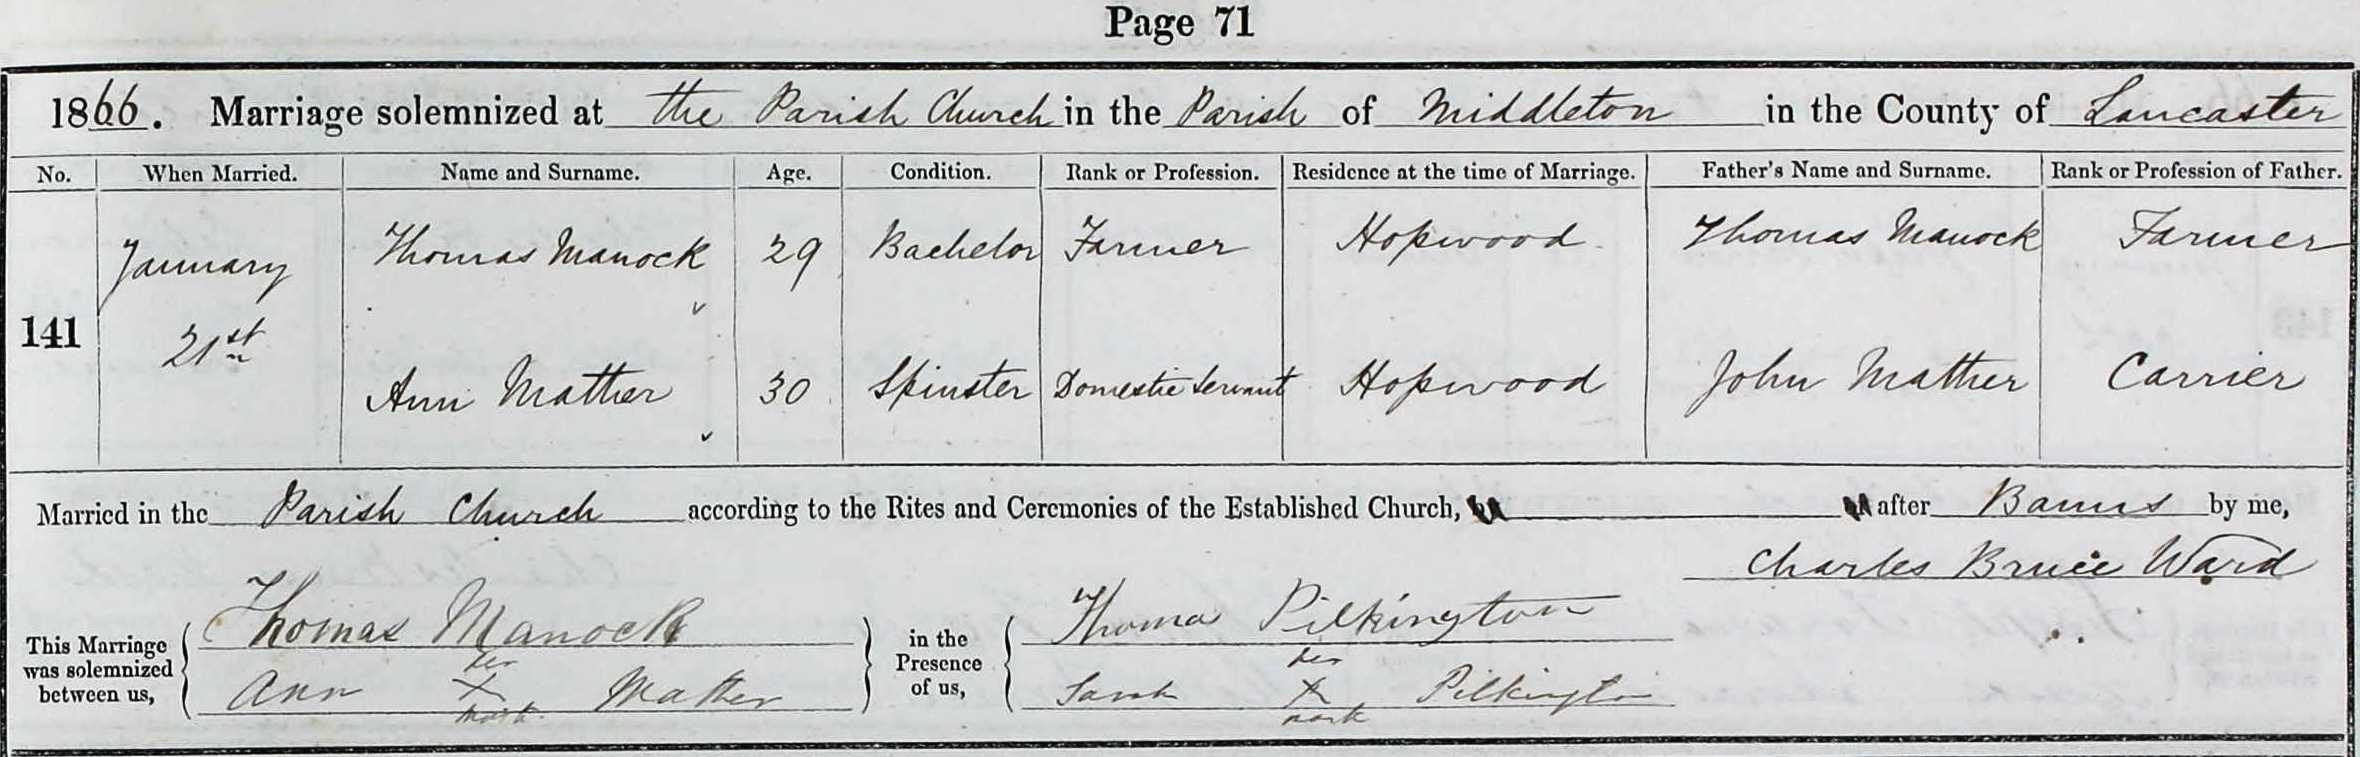 Page 71
1866. Marriage solemnized at the Parish Church in the Parish of Middleton in the County of Lancaster
No. When Married. Name and Surname. Age. Condition. Rank or Profession. Residence at the time of Marriage. Father's Name and Surname. Rank or Profession of Father.
January Thomas Manock 29 Bachelor Farmer Hopwood Thomas Manock Farmer
141 21st
Ann Mather 30 Spinster Domestic Servant Hopwood John Mather Carrier
Married in the Parish Church according to the Rites and Ceremonies of the Established Church, after Banns by me,
Charles Bruce Ward
This Marriage was solemnized between us, Thomas Manock in the Presence of us, Thomas Pilkington
her her
Ann X Mather Sarah X Pilkington
mark. mark